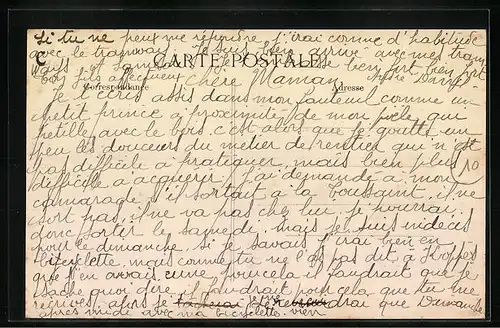 Si tu ne peux me répondre j'irai comme d'habitude
avec le tramway. Je suis bien arrivé avec mes tram
ways et
CARTE POSTALE
bien fort bien fort
ton fils affectueux
Chère Maman
Correspondance
Adresse
Je t'écris assis dans mon fauteuil comme un
petit prince à proximité de mon poêle qui
pétille avec le bois, c'est alors que je goutte un
peu les douceurs du métier de rentier qui n'est
pas difficile à pratiquer, mais bien plus
difficile à acquérir. J'ai demandé à mon
camarade s'il sortait à la Toussaint, il ne
sort pas, il ne va pas chez lui. Je pourrai
donc sortir le samedi, mais je suis indécis
pour le dimanche, si je savais j'irai bien en
bicyclette, mais comme tu ne l'as pas dit à
que j'en avais une, pour cela il faudrait que je
sache quoi dire, il faudrait pour cela que tu me
écrives, alors je viendrai que Dimanche
après midi avec ma bicyclette, bien
10